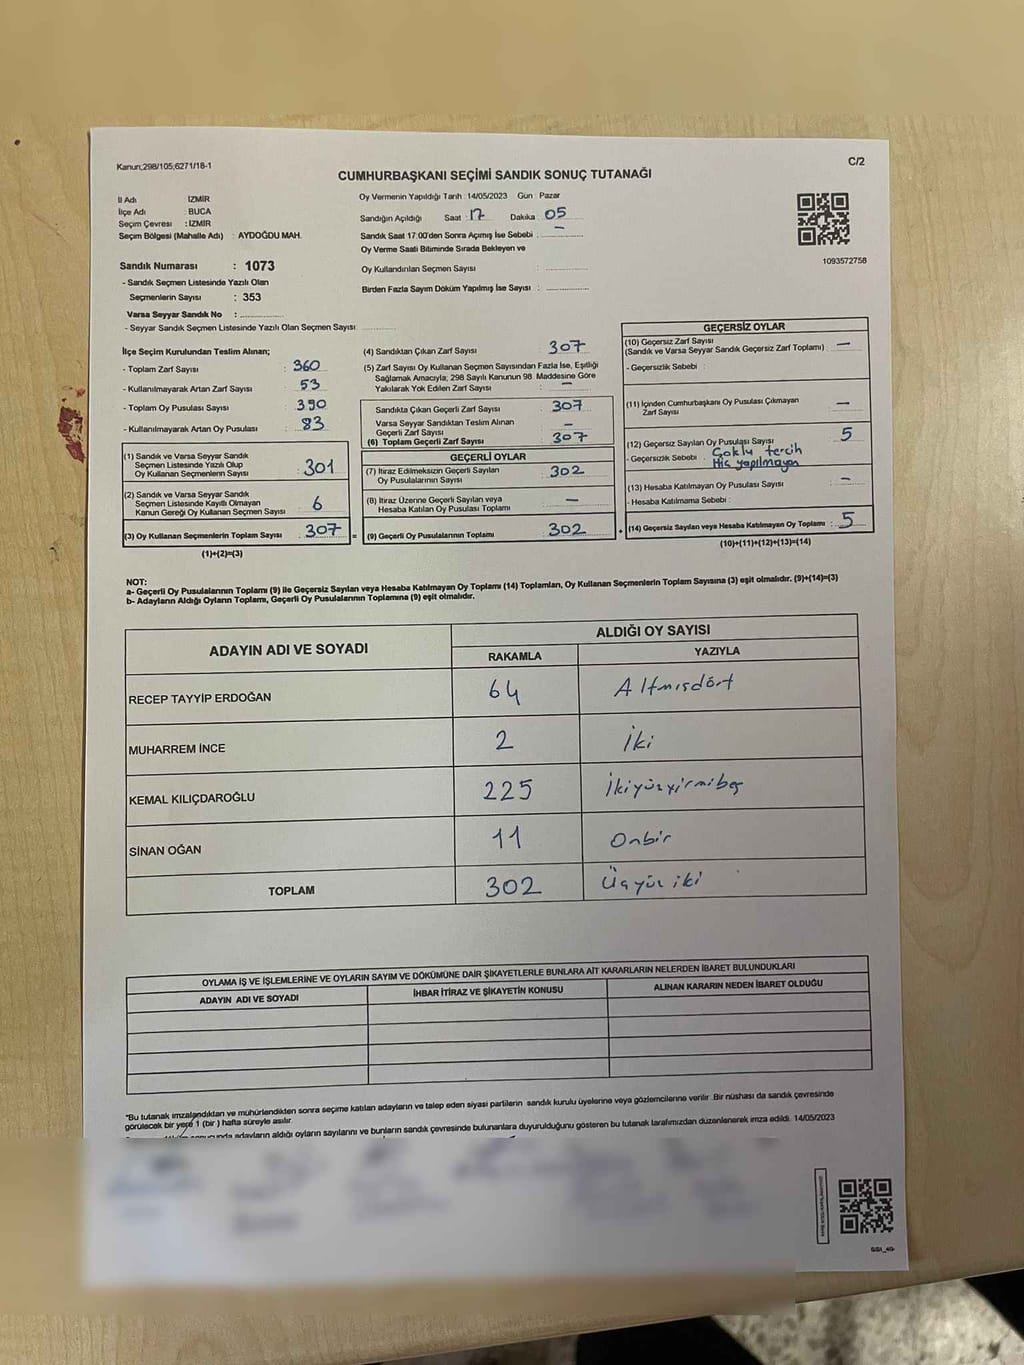 Kanun;298/105;6271/18-1
C/2
CUMHURBAŞKANI SEÇİMİ SANDIK SONUÇ TUTANAĞI
İl Adı İZMİR
İlçe Adı : BUCA
Seçim Çevresi : İZMİR
Seçim Bölgesi (Mahalle Adı) : AYDOĞDU MAH.
Oy Vermenin Yapıldığı Tarih :14/05/2023 Gün : Pazar
Sandığın Açıldığı Saat : 17 Dakika : 05
Sandık Saat 17:00'den Sonra Açımış İse Sebebi : –
Oy Verme Saati Bitiminde Sırada Bekleyen ve
Oy Kullandırılan Seçmen Sayısı :
Birden Fazla Sayım Döküm Yapılmış İse Sayısı :
1093572758
Sandık Numarası : 1073
- Sandık Seçmen Listesinde Yazılı Olan
Seçmenlerin Sayısı : 353
Varsa Seyyar Sandık No :
- Seyyar Sandık Seçmen Listesinde Yazılı Olan Seçmen Sayısı:
İlçe Seçim Kurulundan Teslim Alınan;
- Toplam Zarf Sayısı : 360
- Kullanılmayarak Artan Zarf Sayısı : 53
- Toplam Oy Pusulası Sayısı : 390
- Kullanılmayarak Artan Oy Pusulası : 83
(1) Sandık ve Varsa Seyyar Sandık
Seçmen Listesinde Yazılı Olup
Oy Kullanan Seçmenlerin Sayısı : 301
(2) Sandık ve Varsa Seyyar Sandık
Seçmen Listesinde Kayıtlı Olmayan
Kanun Gereği Oy Kullanan Seçmen Sayısı : 6
(3) Oy Kullanan Seçmenlerin Toplam Sayısı : 307 =
(1)+(2)=(3)
(4) Sandıktan Çıkan Zarf Sayısı : 307
(5) Zarf Sayısı Oy Kullanan Seçmen Sayısından Fazla İse, Eşitliği
Sağlamak Amacıyla, 298 Sayılı Kanunun 98. Maddesine Göre
Yakılarak Yok Edilen Zarf Sayısı : –
Sandıkta Çıkan Geçerli Zarf Sayısı : 307
Varsa Seyyar Sandıktan Teslim Alınan
Geçerli Zarf Sayısı : –
(6) Toplam Geçerli Zarf Sayısı : 307
GEÇERLİ OYLAR
(7) İtiraz Edilmeksizin Geçerli Sayılan
Oy Pusulalarının Sayısı : 302
(8) İtiraz Üzerine Geçerli Sayılan veya
Hesaba Katılan Oy Pusulası Toplamı : –
(9) Geçerli Oy Pusulalarının Toplamı : 302 +
GEÇERSİZ OYLAR
(10) Geçersiz Zarf Sayısı
(Sandık ve Varsa Seyyar Sandık Geçersiz Zarf Toplamı) : –
- Geçersizlik Sebebi :
(11) İçinden Cumhurbaşkanı Oy Pusulası Çıkmayan
Zarf Sayısı : –
(12) Geçersiz Sayılan Oy Pusulası Sayısı : 5
- Geçersizlik Sebebi : Çoklu tercih
Hiç yapılmayan
(13) Hesaba Katılmayan Oy Pusulası Sayısı : –
- Hesaba Katılmama Sebebi :
(14) Geçersiz Sayılan veya Hesaba Katılmayan Oy Toplamı : 5
(10)+(11)+(12)+(13)=(14)
NOT:
a- Geçerli Oy Pusulalarının Toplamı (9) ile Geçersiz Sayılan veya Hesaba Katılmayan Oy Toplamı (14) Toplamları, Oy Kullanan Seçmenlerin Toplam Sayısına (3) eşit olmalıdır. (9)+(14)=(3)
b- Adayların Aldığı Oyların Toplamı, Geçerli Oy Pusulalarının Toplamına (9) eşit olmalıdır.
ADAYIN ADI VE SOYADI
ALDIĞI OY SAYISI
RAKAMLA YAZIYLA
RECEP TAYYİP ERDOĞAN 64 Altmışdört
MUHARREM İNCE 2 İki
KEMAL KILIÇDAROĞLU 225 İkiyüzyirmibeş
SİNAN OĞAN 11 Onbir
TOPLAM 302 Üçyüz iki
OYLAMA İŞ VE İŞLEMLERİNE VE OYLARIN SAYIM VE DÖKÜMÜNE DAİR ŞİKAYETLERLE BUNLARA AİT KARARLARIN NELERDEN İBARET BULUNDUKLARI
ADAYIN ADI VE SOYADI İHBAR İTİRAZ VE ŞİKAYETİN KONUSU ALINAN KARARIN NEDEN İBARET OLDUĞU
"Bu tutanak imzalandıktan ve mühürlendikten sonra seçime katılan adayların ve talep eden siyasi partilerin sandık kurulu üyelerine veya gözlemcilerine verilir .Bir nüshası da sandık çevresinde
görülecek bir yere 1 (bir ) hafta süreyle asılır.
adayların aldığı oyların sayılarını ve bunların sandık çevresinde bulunanlara duyurulduğunu gösteren bu tutanak tarafımızdan düzenlenerek imza edildi. 14/05/2023